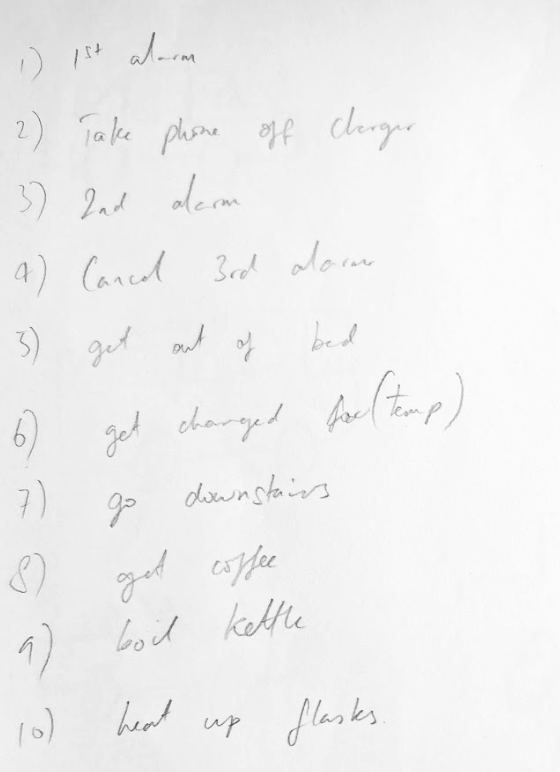 1) 1st alarm
2) Take phone off charger
3) 2nd alarm
4) Cancel 3rd alarm
5) get out of bed
6) get changed (temp)
7) go downstairs
8) get coffee
9) boil kettle
10) heat up flasks.